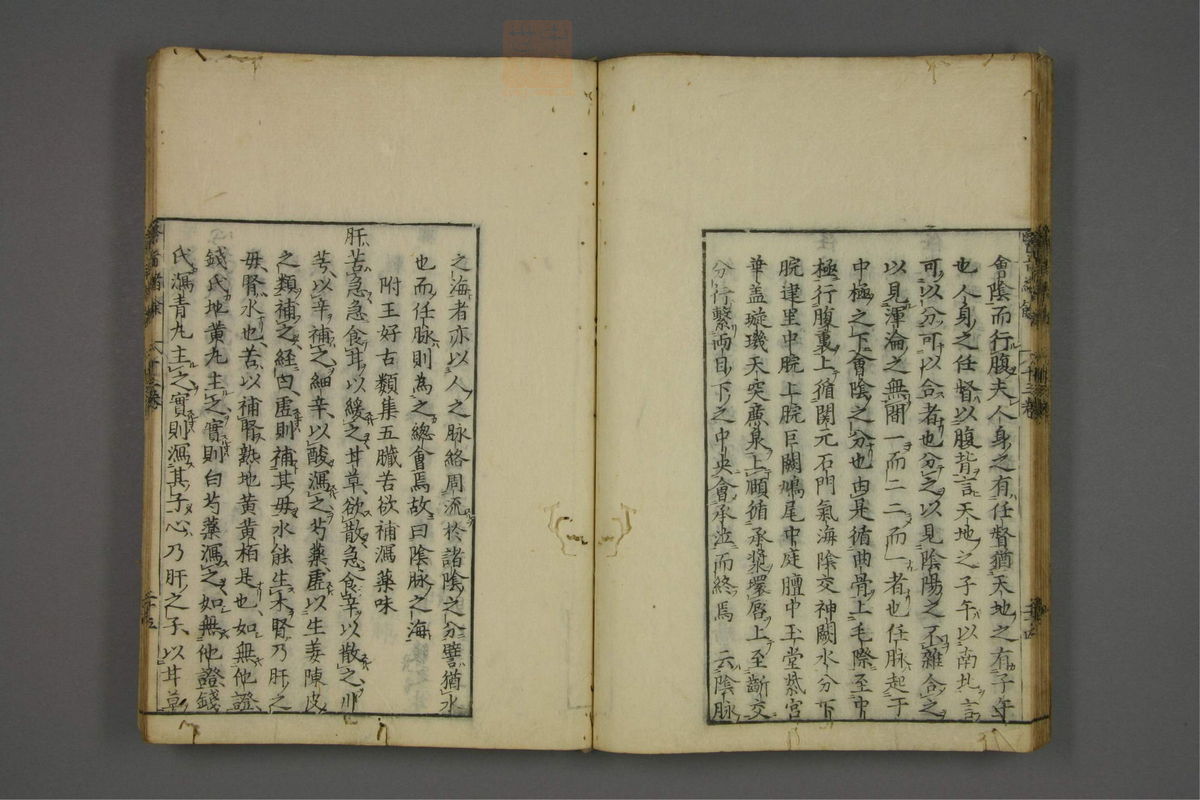 會陰而行腹夫人身之有任督猶天地之有子午
也人身之任督以腹背言天地之子午以南北言
可以分可以合者也分之以見陰陽之不雜合之
以見渾淪之無間一而二二而一者也任脉起于
中極之下會陰之分也由是循曲骨上毛際至中
極行腹裏上循関元石門氣海陰交神闕水分下
脘建里中脘上脘巨闕鳩尾中庭膻中玉堂紫宮
華盖璇璣天突廉泉上頤循承漿環唇上至齗交
分行繫兩目下之中央會承泣而終焉 云陰脉
之海者亦以人之脉絡周流於諸陰之分譬猶水
也而任脉則為之總會焉故曰陰脉之海
附王好古類集五臟苦欲補瀉藥味
肝苦急急食甘以緩之甘草欲散急食辛以散之川
芎以辛補之細辛以酸瀉之芍藥虛以生姜陳皮
之類補之經曰虛則補其毋水能生木腎乃肝之
毋腎水也苦以補腎熟地黄黄栢是也如無他證
錢氏地黄丸主之實則白芍藥瀉之如無他證錢
氏瀉青丸主之實則瀉其子心乃肝之子以甘草